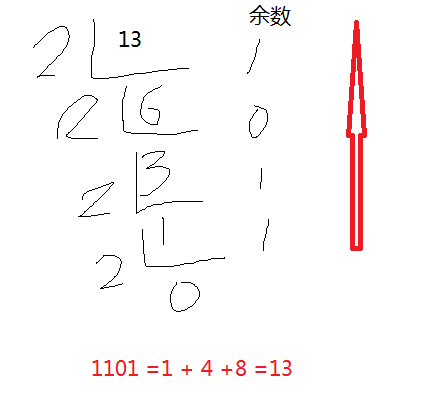 余数
2 13 1
2 6 0
2 3 1
2 1 1
0
1101 =1 + 4 +8 =13